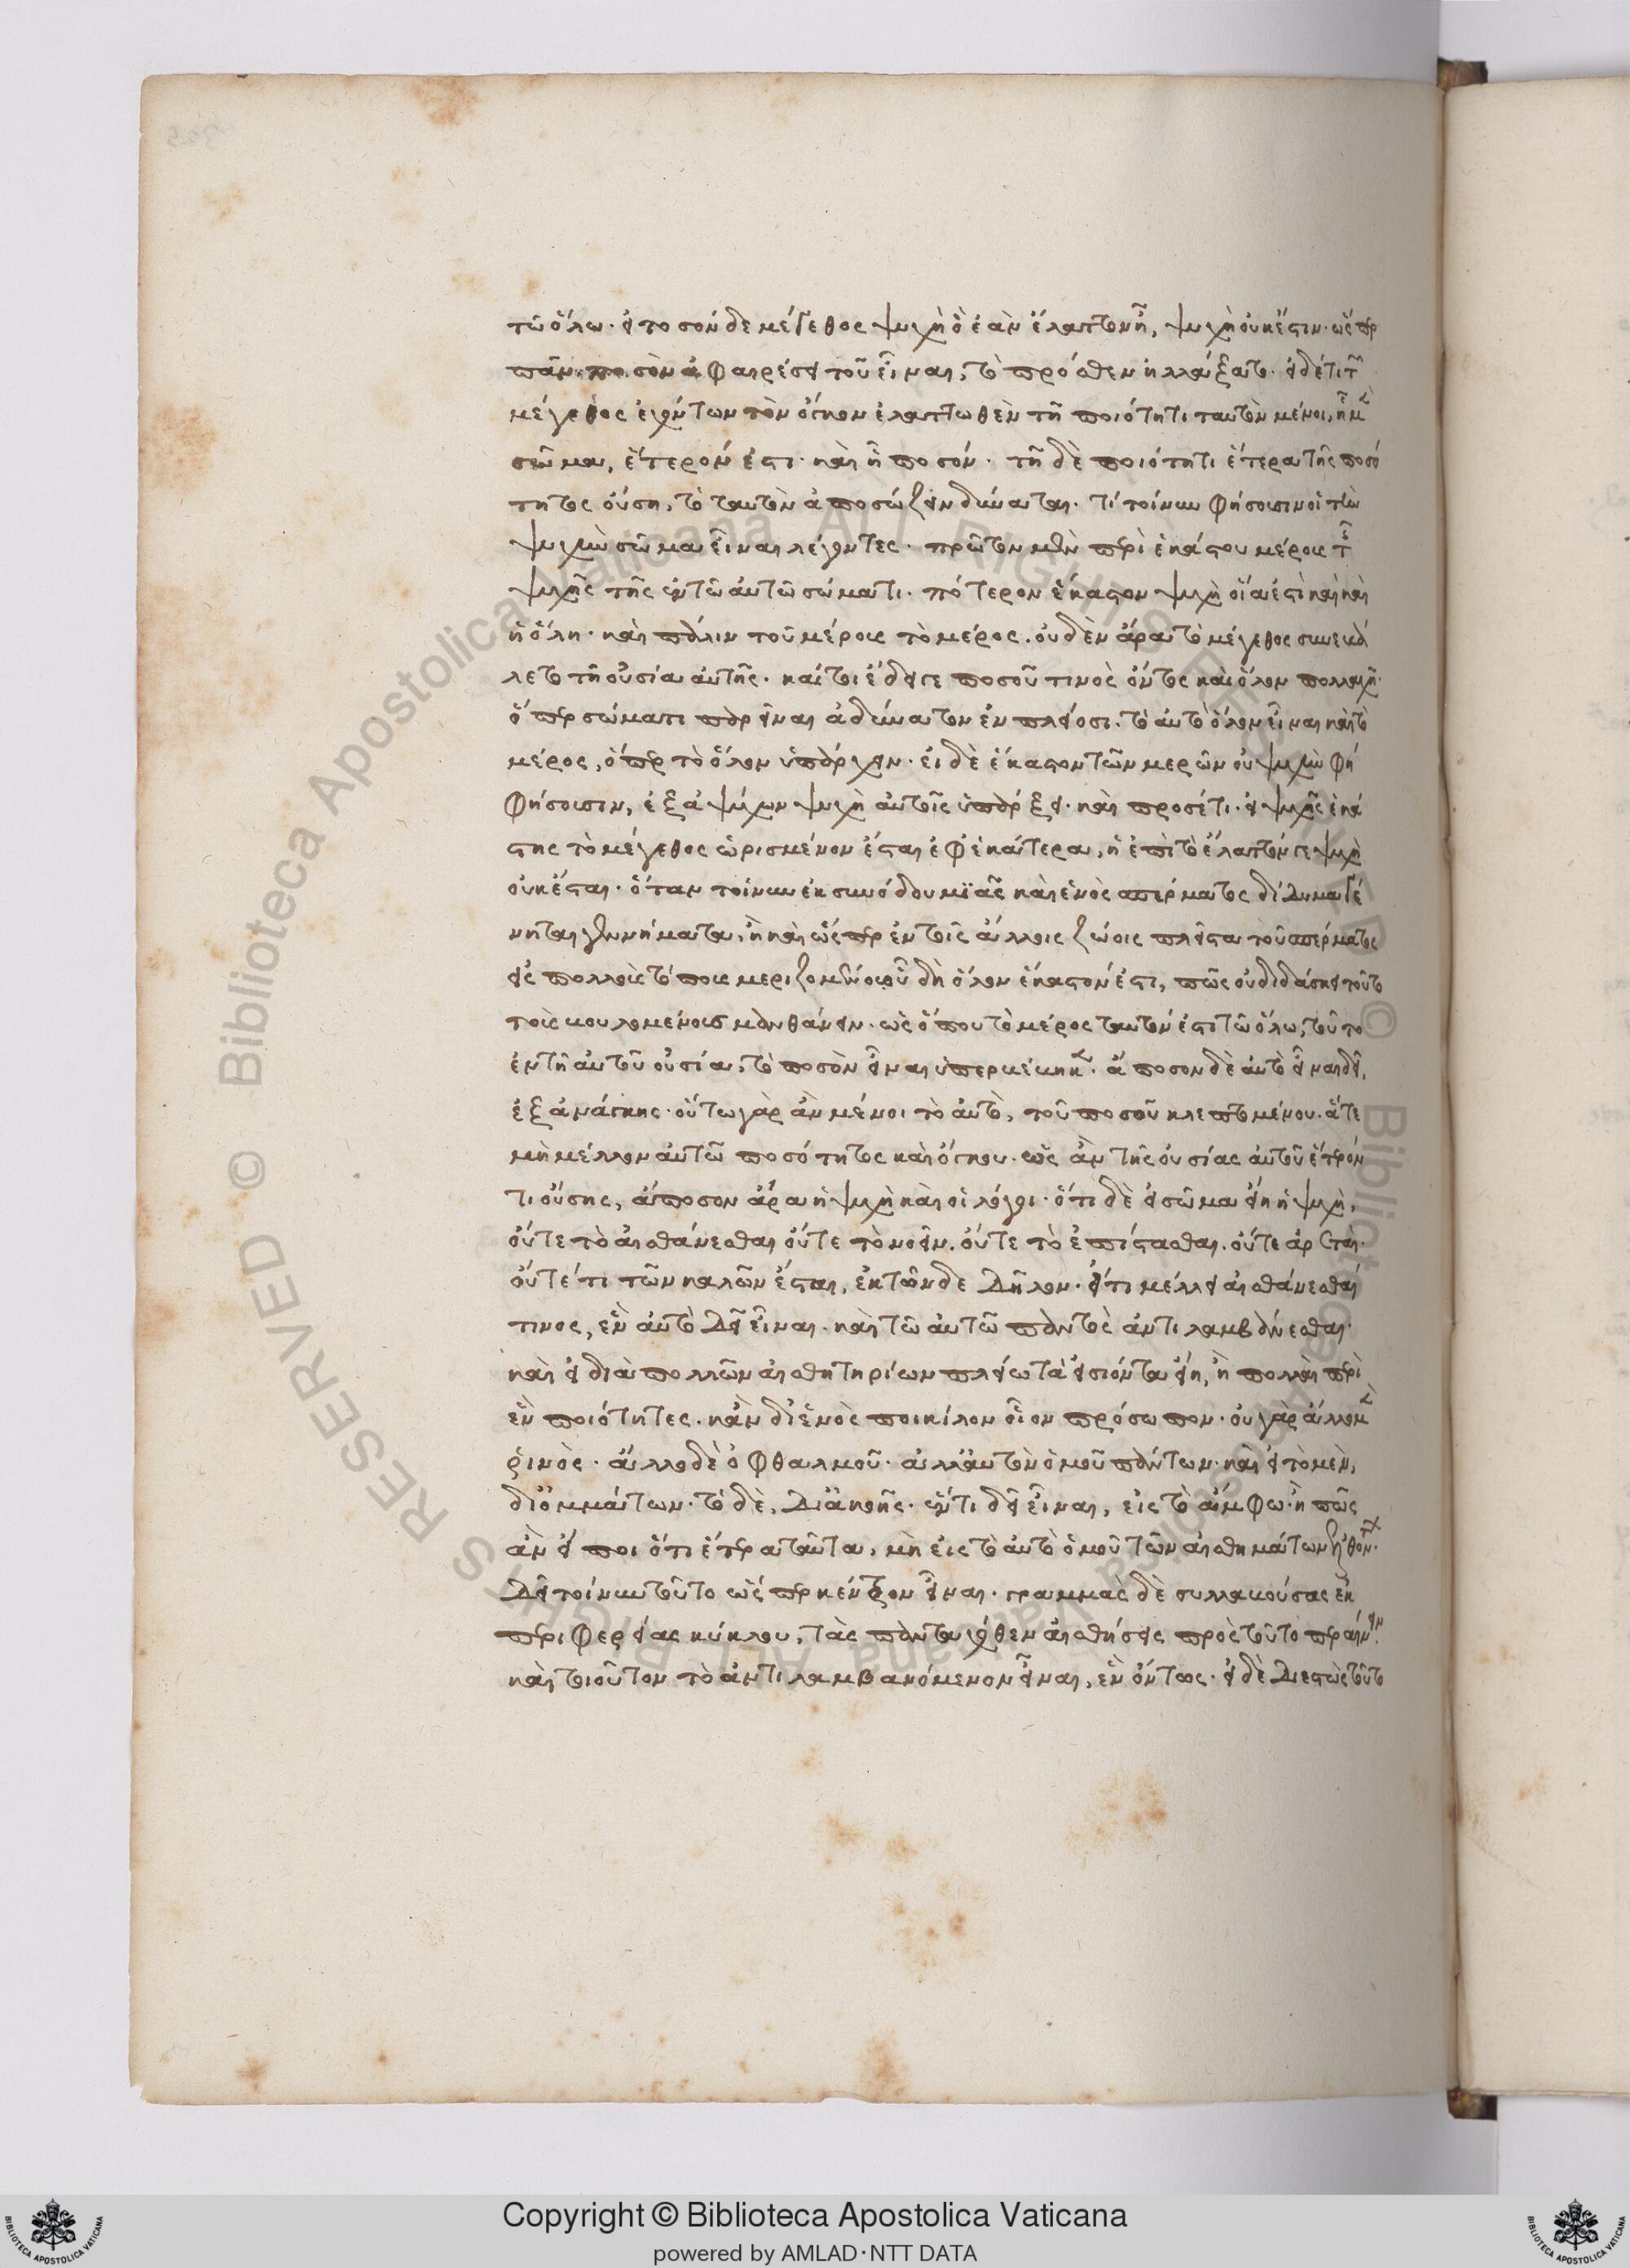 τῶ ὅλω· εἰ τοσόνδε μέγεθος ψυχὴ ὃ ἐὰν ἔλαττον ῆ, ψυχὴ οὐκ ἔστιν· ὥσπερ
παντὸς ποσοῦ ἀφαιρέσει τοῦ εἶναι, τὸ πρόσθεν ἠλλάξατο· εἰ δέ τι τῶν
μέγεθος ἐχόντων τὸν ὄγκον ἐλαττωθὲν τῆ ποιότητι ταυτὸν μένοι, ῆ μὲν
σῶμα, ἕτερόν ἐστι· καὶ ῆ ποσόν· τῆ δὲ ποιότητι ἑτέρα τῆς ποσό
τητος οὔση, τὸ ταυτὸν ἀποσώζειν δύναται· τί τοίνυν φήσουσιν οἱ τὴν
ψυχὴν σῶμα εἶναι λέγοντες· πρῶτον μὲν περὶ ἑκάστου μέρους τῆς
ψυχῆς τῆς ἐν τῶ αὐτῶ σώματι· πότερον ἕκαστον ψυχὴ οἵα ἐστὶ καὶ
ἡ ὅλη· καὶ πάλιν τοῦ μέρους τὸ μέρος· οὐδὲν ἄρα τὸ μέγεθος συνεβάλ
λετο τῆ οὐσία αὐτῆς· καίτοι ἔδει γε ποσοῦ τινὸς ὄντος καὶ ὅλον πολλαχῆ·
ὅπερ σώματι παρεῖναι ἀδύνατον ἐν πλείοσι· τὸ αὐτὸ ὅλον εἶναι καὶ τὸ
μέρος, ὅπερ τὸ ὅλον ὑπάρχειν· εἰ δὲ ἕκαστον τῶν μερῶν οὐ ψυχὴν φή
φήσουσιν, ἐξ ἀψύχων ψυχὴ αὐτοῖς ὑπάρξει· καὶ προσέτι· εἰ ψυχῆς ἑκά
στης τὸ μέγεθος ὡρισμένον ἔσται ἐφ' ἑκάτερα, ἢ ἐπὶ τὸ ἔλαττόν γε ψυχὴ
οὐκ ἔσται· ὅταν τοίνυν ἐκ συνόδου μϊᾶς καὶ ἑνὸς σπέρματος δίδυμα γέ
νηται γεννήματα, ἢ καὶ ὥσπερ ἐν τοῖς ἄλλοις ζώοις πλεῖστα τοῦ σπέρματος
εἰς πολλοὺς τόπους μεριζομένου οὗ δὴ ὅλον ἕκαστόν ἐστι, πῶς οὐ διδάσκει τοῦτο
τοὺς βουλομένους μανθάνειν· ὡς ὅπου τὸ μέρος ταυτόν ἐστι τῶ ὅλω, τοῦτο
ἐν τῆ αὐτοῦ οὐσία, τὸ ποσὸν εἶναι ὑπερβέβηκεν· ἄποσον δὲ αὐτὸ εἶναι δεῖ,
ἐξ ἀνάγκης· οὕτω γὰρ ἂν μένοι τὸ αὐτὸ, τοῦ ποσοῦ κλεπτομένου· ἅτε
μὴ μέλλον αὐτῶ ποσότητος καὶ ὄγκου· ὡς ἂν τῆς οὐσίας αὐτοῦ ἕτερόν
τι οὔσης, ἄποσον ἄρα ἡ ψυχὴ καὶ οἱ λόγοι· ὅτι δὲ εἰ σῶμα εἴη ἡ ψυχὴ,
οὔτε τὸ αἰσθάνεσθαι οὔτε τὸ νοεῖν· οὔτε τὸ ἐπίστασθαι· οὔτε ἀρετὴ·
οὔτέ τι τῶν καλῶν ἔσται, ἐκ τῶνδε δῆλον· εἴ τι μέλλει αἰσθάνεσθαί
τινος, ἓν αὐτὸ δεῖ εἶναι· καὶ τῶ αὐτῶ παντὸς ἀντιλαμβάνεσθαι·
καὶ εἰ διὰ πολλῶν αἰσθητηρίων πλείω τὰ εἰσιόντα εἴη, ἢ πολλαὶ περὶ
ἓν ποιότητες· κἂν δι' ἑνὸς ποικίλον οἷον πρόσωπον· οὐ γὰρ ἄλλο μὲν
ῥινὸς· ἄλλο δὲ ὀφθαλμοῦ· ἀλλὰ ταυτὸν ὁμοῦ πάντων· καὶ εἰ τὸ μὲν,
δι' ὀμμάτων· τὸ δὲ, δι' ἀκοῆς· ἕν τι δεῖ εἶναι, εἰς τὸ ἄμφω· ἢ πῶς
ἂν εἴποι ὅτι ἕτερα ταῦτα, μὴ εἰς τὸ αὐτὸ ὁμοῦ τῶν αἰσθημάτων ἐλθόντων·
δεῖ τοίνυν τοῦτο ὥσπερ κέντρον εἶναι· γραμμὰς δὲ συλλαβούσας ἐκ
περιφερείας κύκλου, τὰς πανταχόθεν αἰσθήσεις πρὸς τοῦτο περαίνειν·
καὶ τοιοῦτον τὸ ἀντιλαμβανόμενον εἶναι, ἓν ὄντως· εἰ δὲ διεστὼς τοῦτο